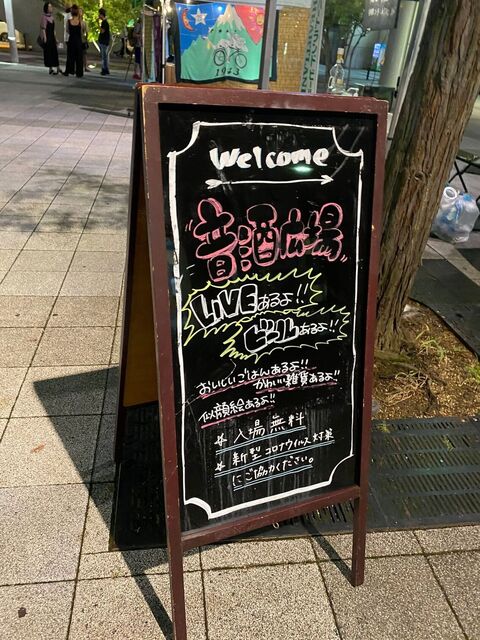 1943
Welcome
音酒広場
LIVEあるよ!!
ビールあるよ!!
おいしいごはんあるよ!!
かわいい雑貨あるよ!!
似顔絵あるよ!!
☆ 入場無料
☆ 新型コロナウイルス対策
にご協力ください。